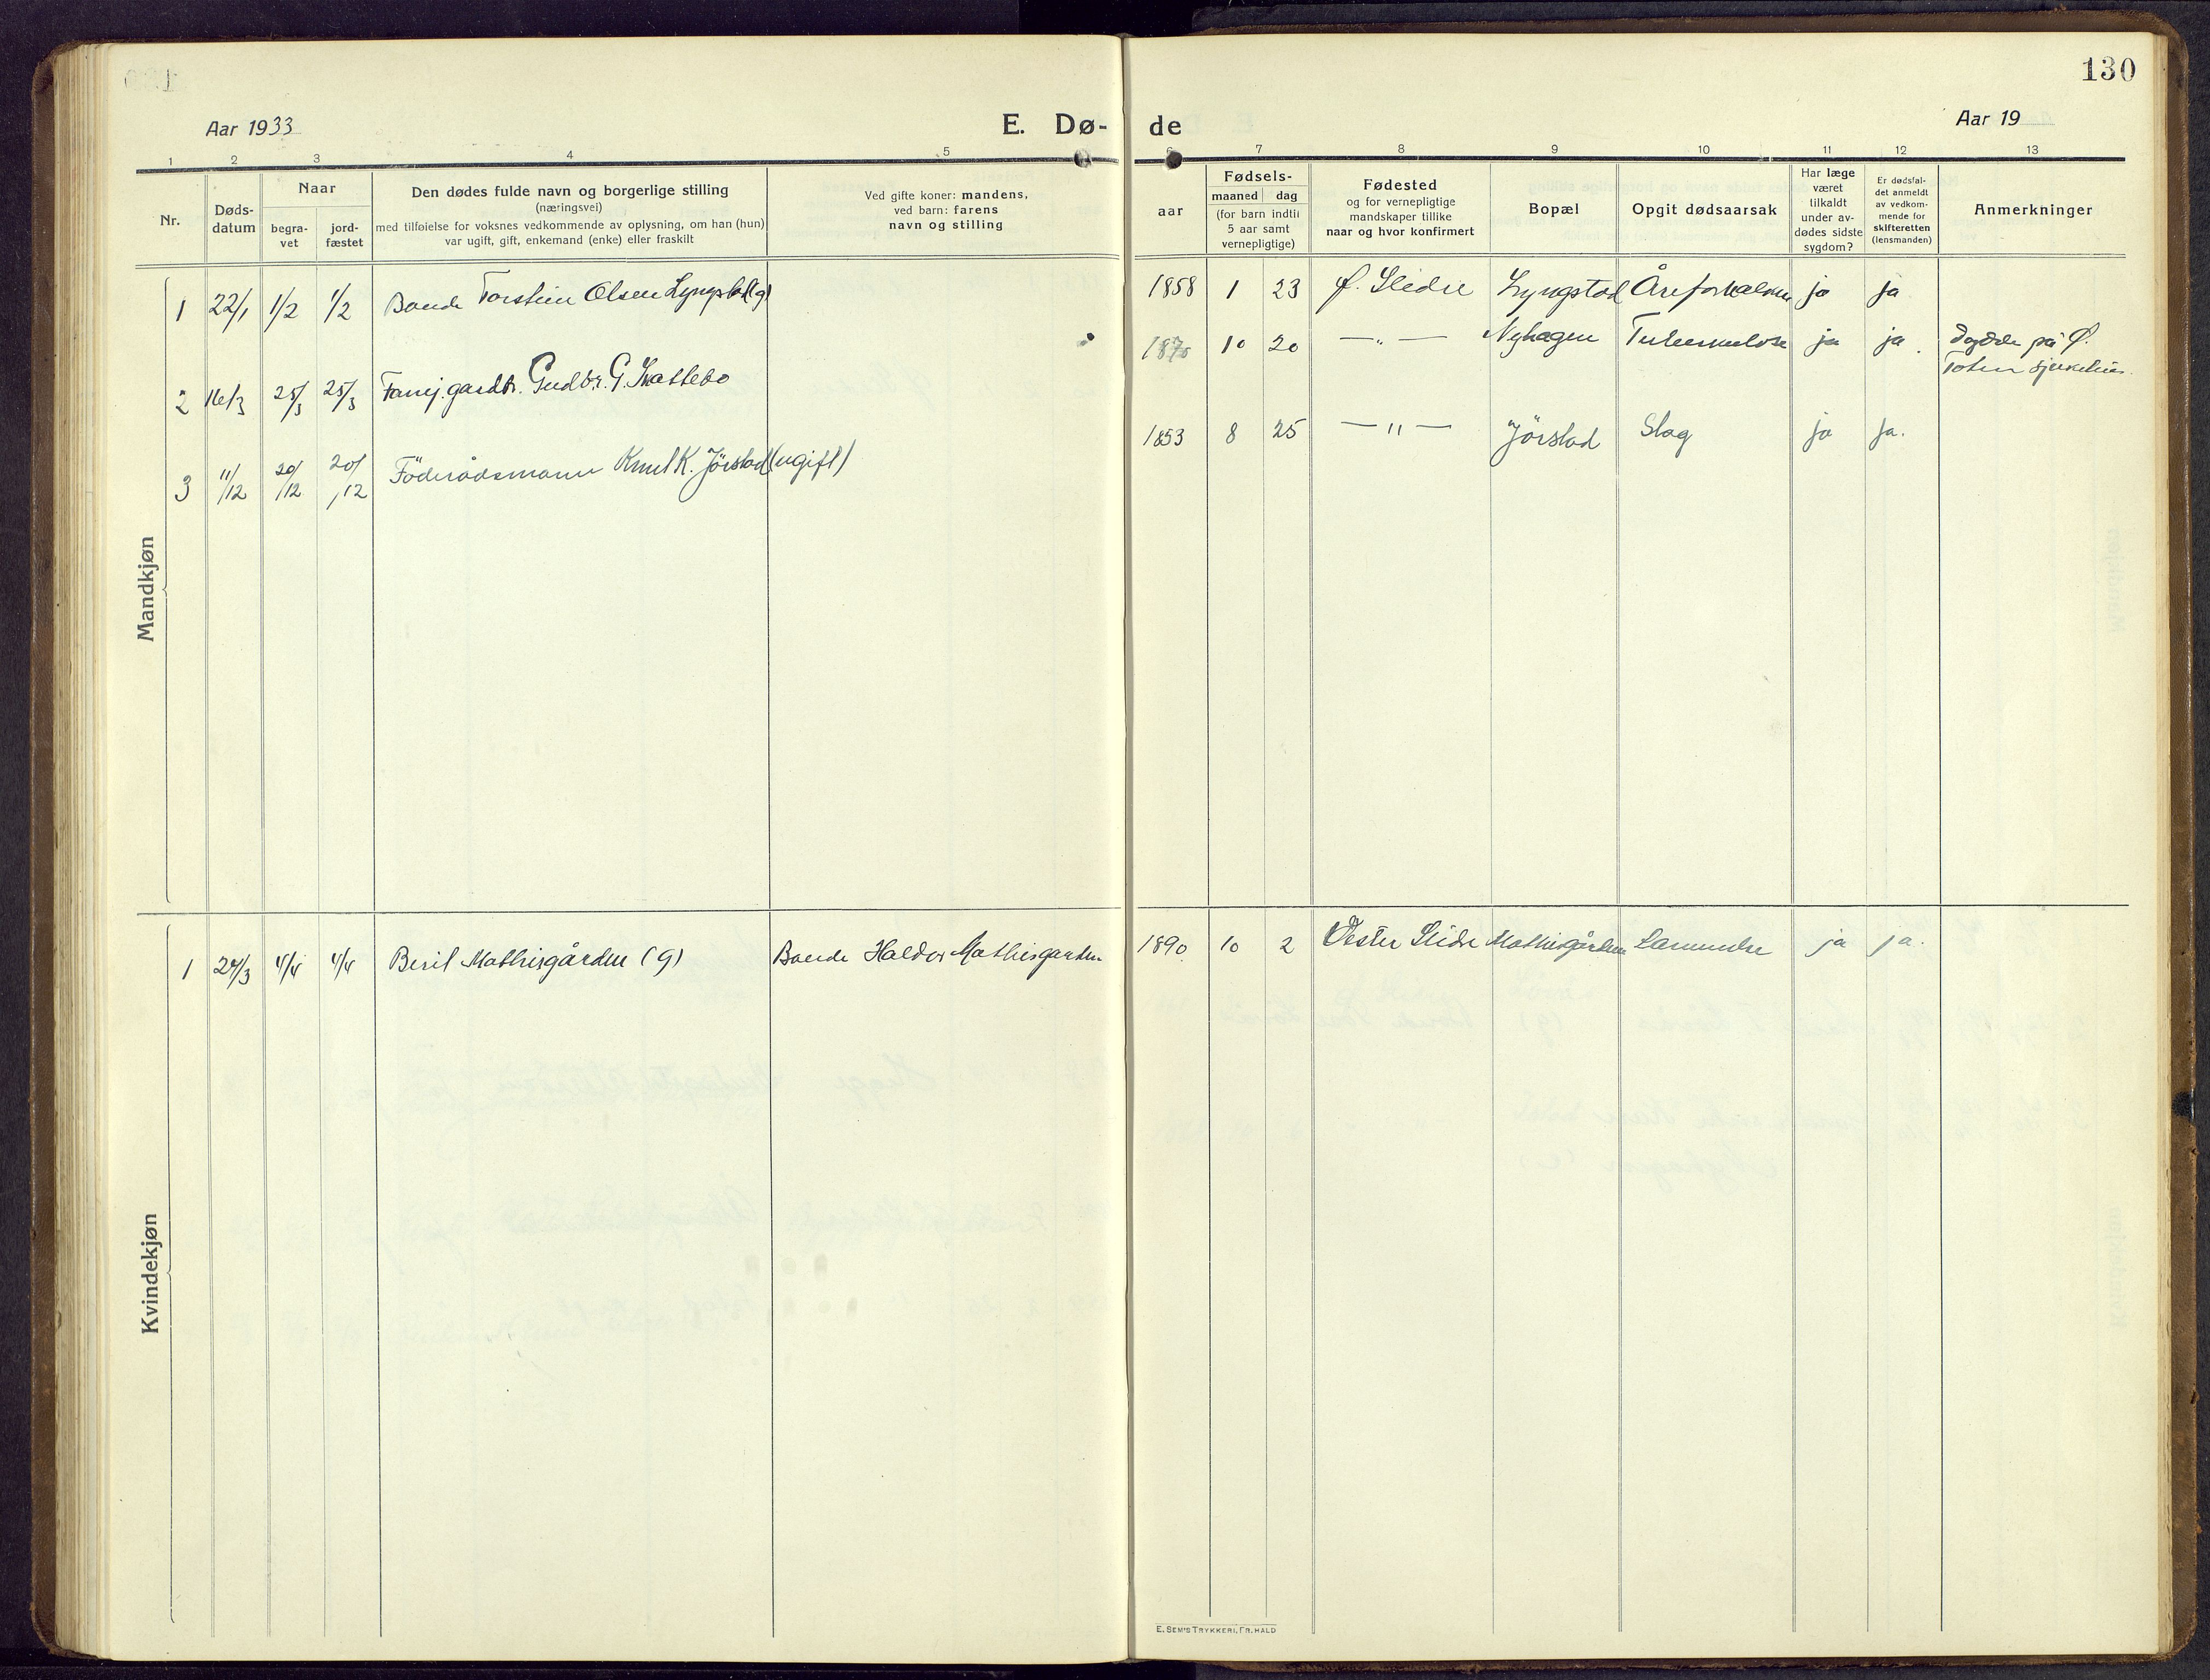 130
Aar 1933
E. Dø-
de
Aar 19
1 2 3 4 5
6 7 8 9 10 11 12 13
Nr.
Døds-
datum
Naar
begra-
vet
jord-
fæstet
Den dødes fulde navn og borgerlige stilling
(næringsvei)
med tilføielse for voksnes vedkommende av oplysning, om han (hun)
var ugift, gift, enkemand (enke) eller fraskilt
Ved gifte koner: mandens,
ved barn: farens
navn og stilling
aar
Fødsels-
maaned dag
(for barn indtil
5 aar samt
vernepligtige)
Fødested
og for vernepligtige
mandskaper tillike
naar og hvor konfirmert
Bopæl
Opgit dødsaarsak
Har læge
været
tilkaldt
under av-
dødes sidste
sygdom?
Er dødsfal-
det anmeldt
av vedkom-
mende for
skifteretten
(lensmanden)
Anmerkninger
Mandkjøn
1 22/1 1/2 1/2 Bonde Torstein Olsen Lyngstad (g) 1858 1 23 Ø. Slidre Lyngstad Åreforkalkn ja ja
2 16/3 25/3 25/3 Gudbr. G. Kattebo 1870 10 20 —"— Nyhagen Tuberkulose ja ja. Døde på Ø.
Toten sjukehus.
3 11/12 20/12 20/12 Föderådsmann Knut K. Jörstad (ugift) 1853 8 25 —"— Jörstad Slag ja ja.
Kvindekjøn
1 24/3 4/4 4/4 Berit Mathisgården (g) Bonde Haldor Mathisgarden 1890 10 2 Vester Slidre Mathisgården ja ja.
E. SEM'S TRYKKERI, FR.HALD